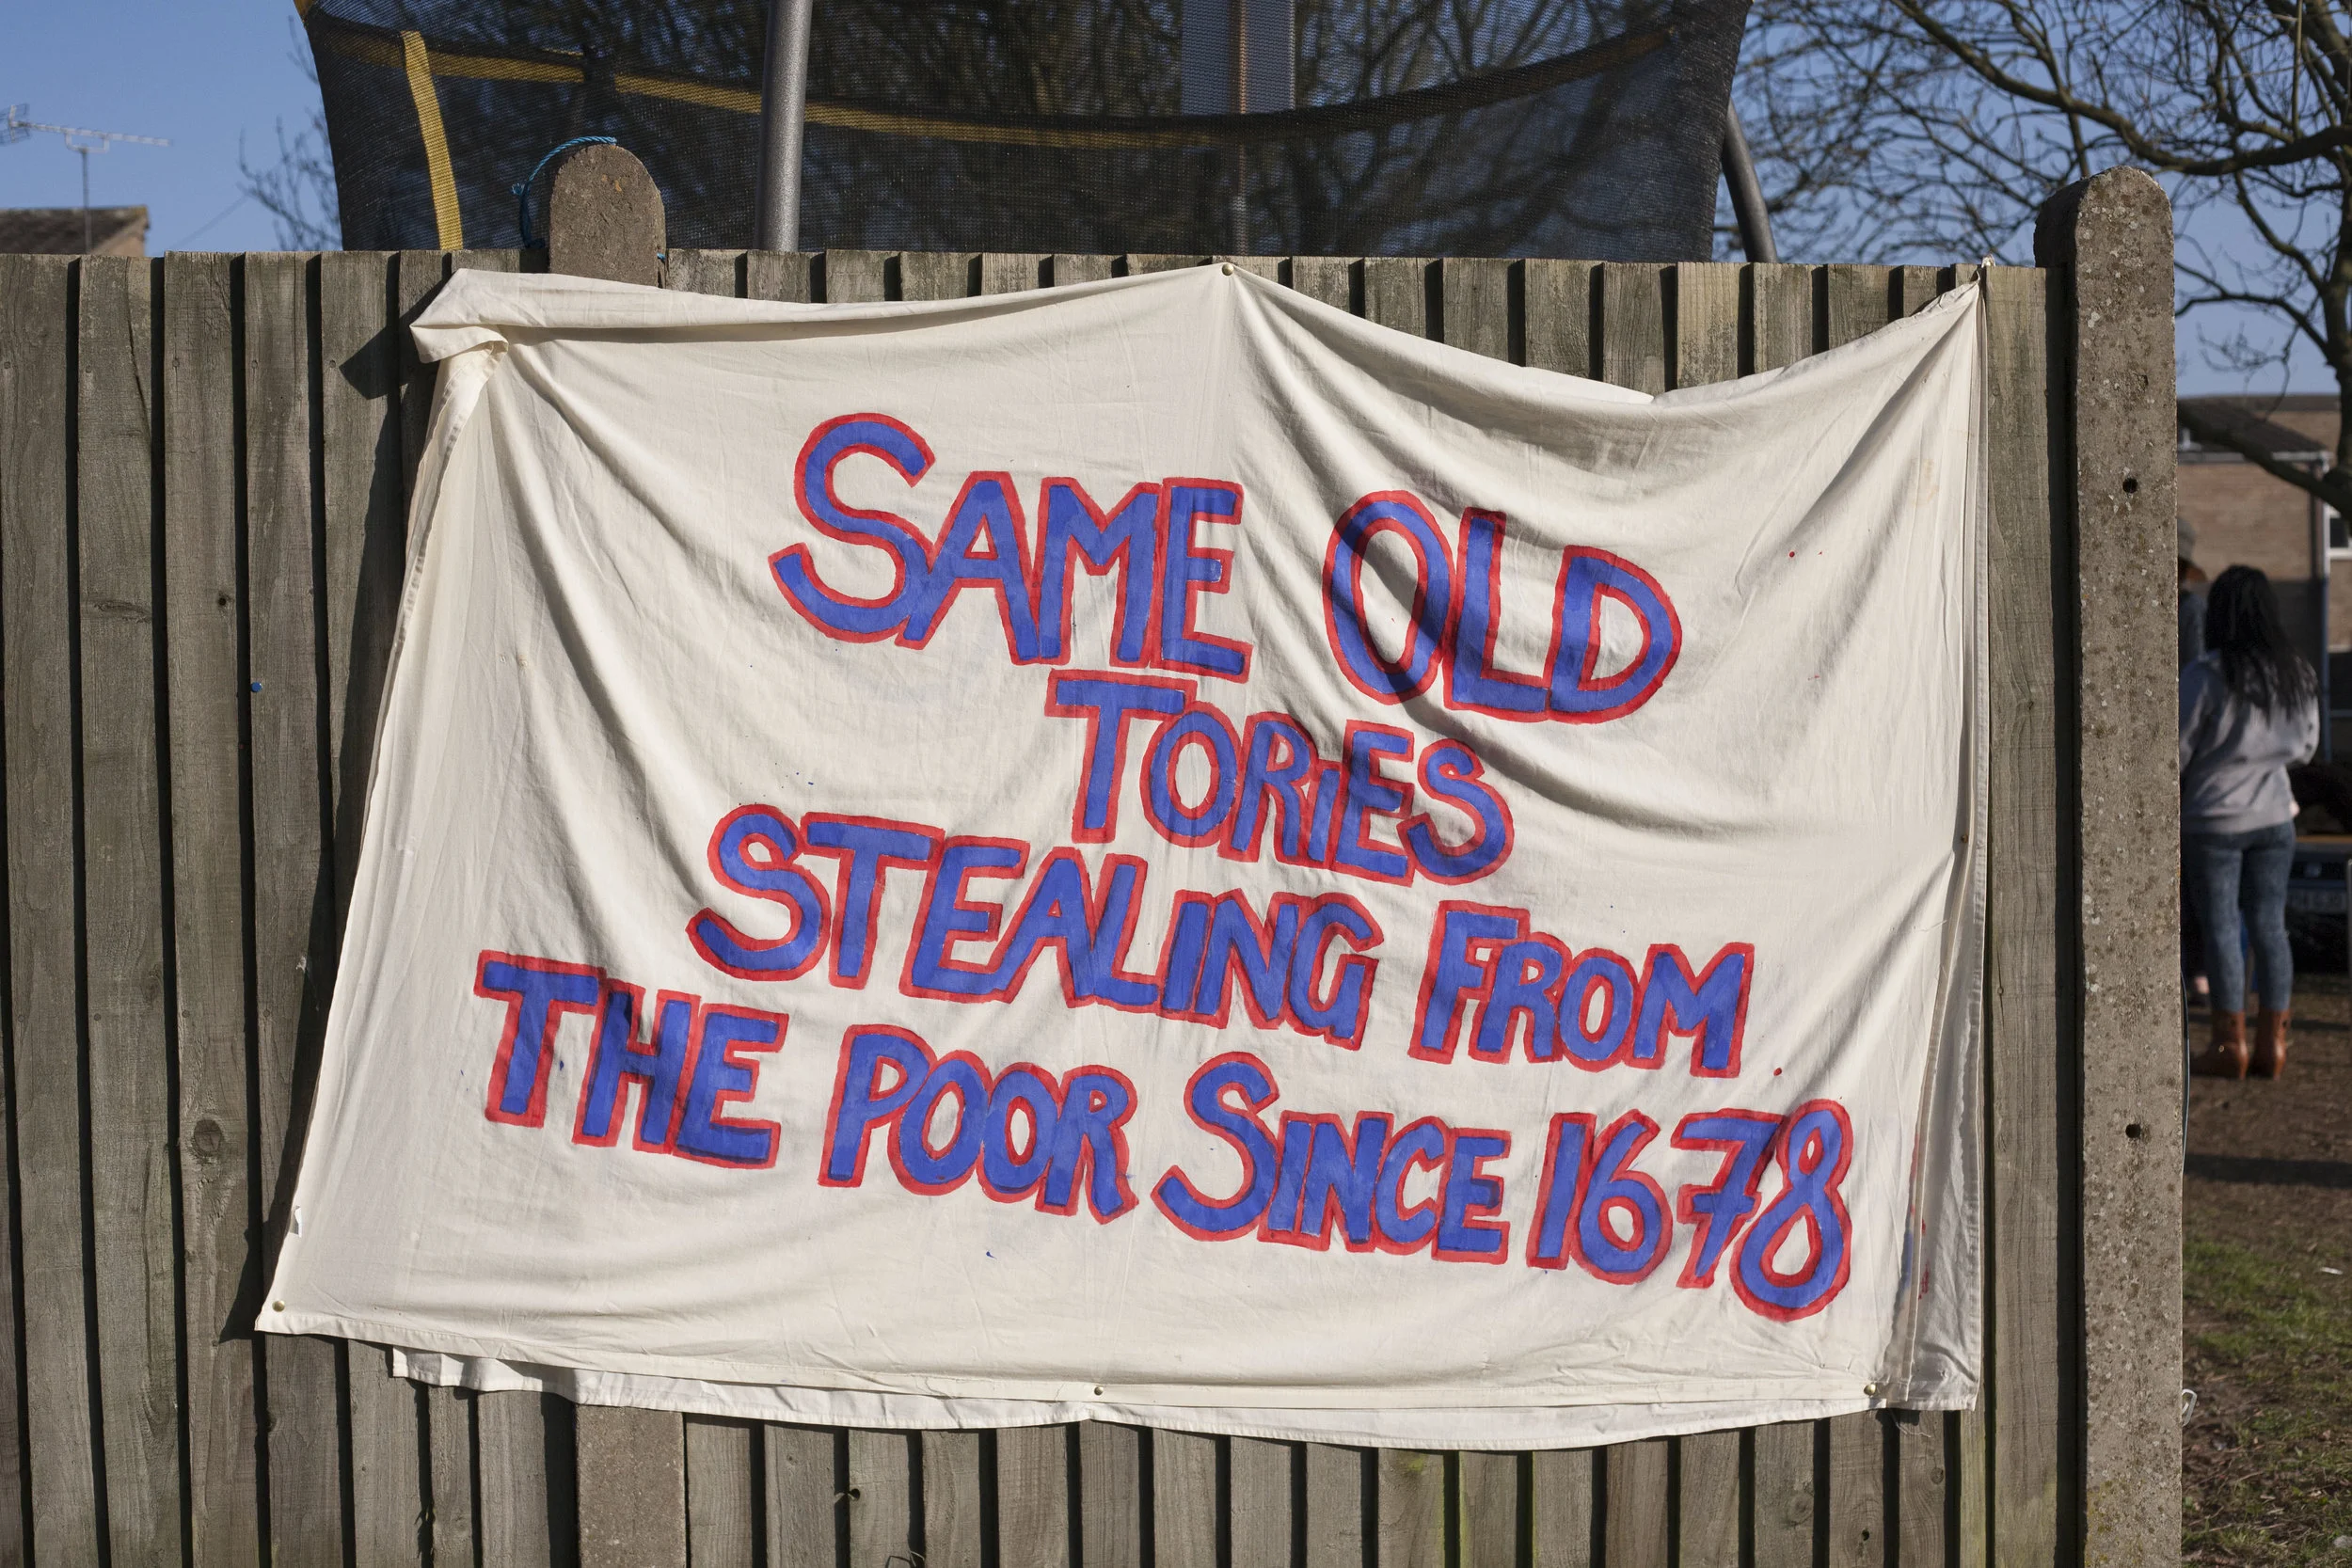 SAME OLD
TORIES
STEALING FROM
THE POOR SINCE 1678